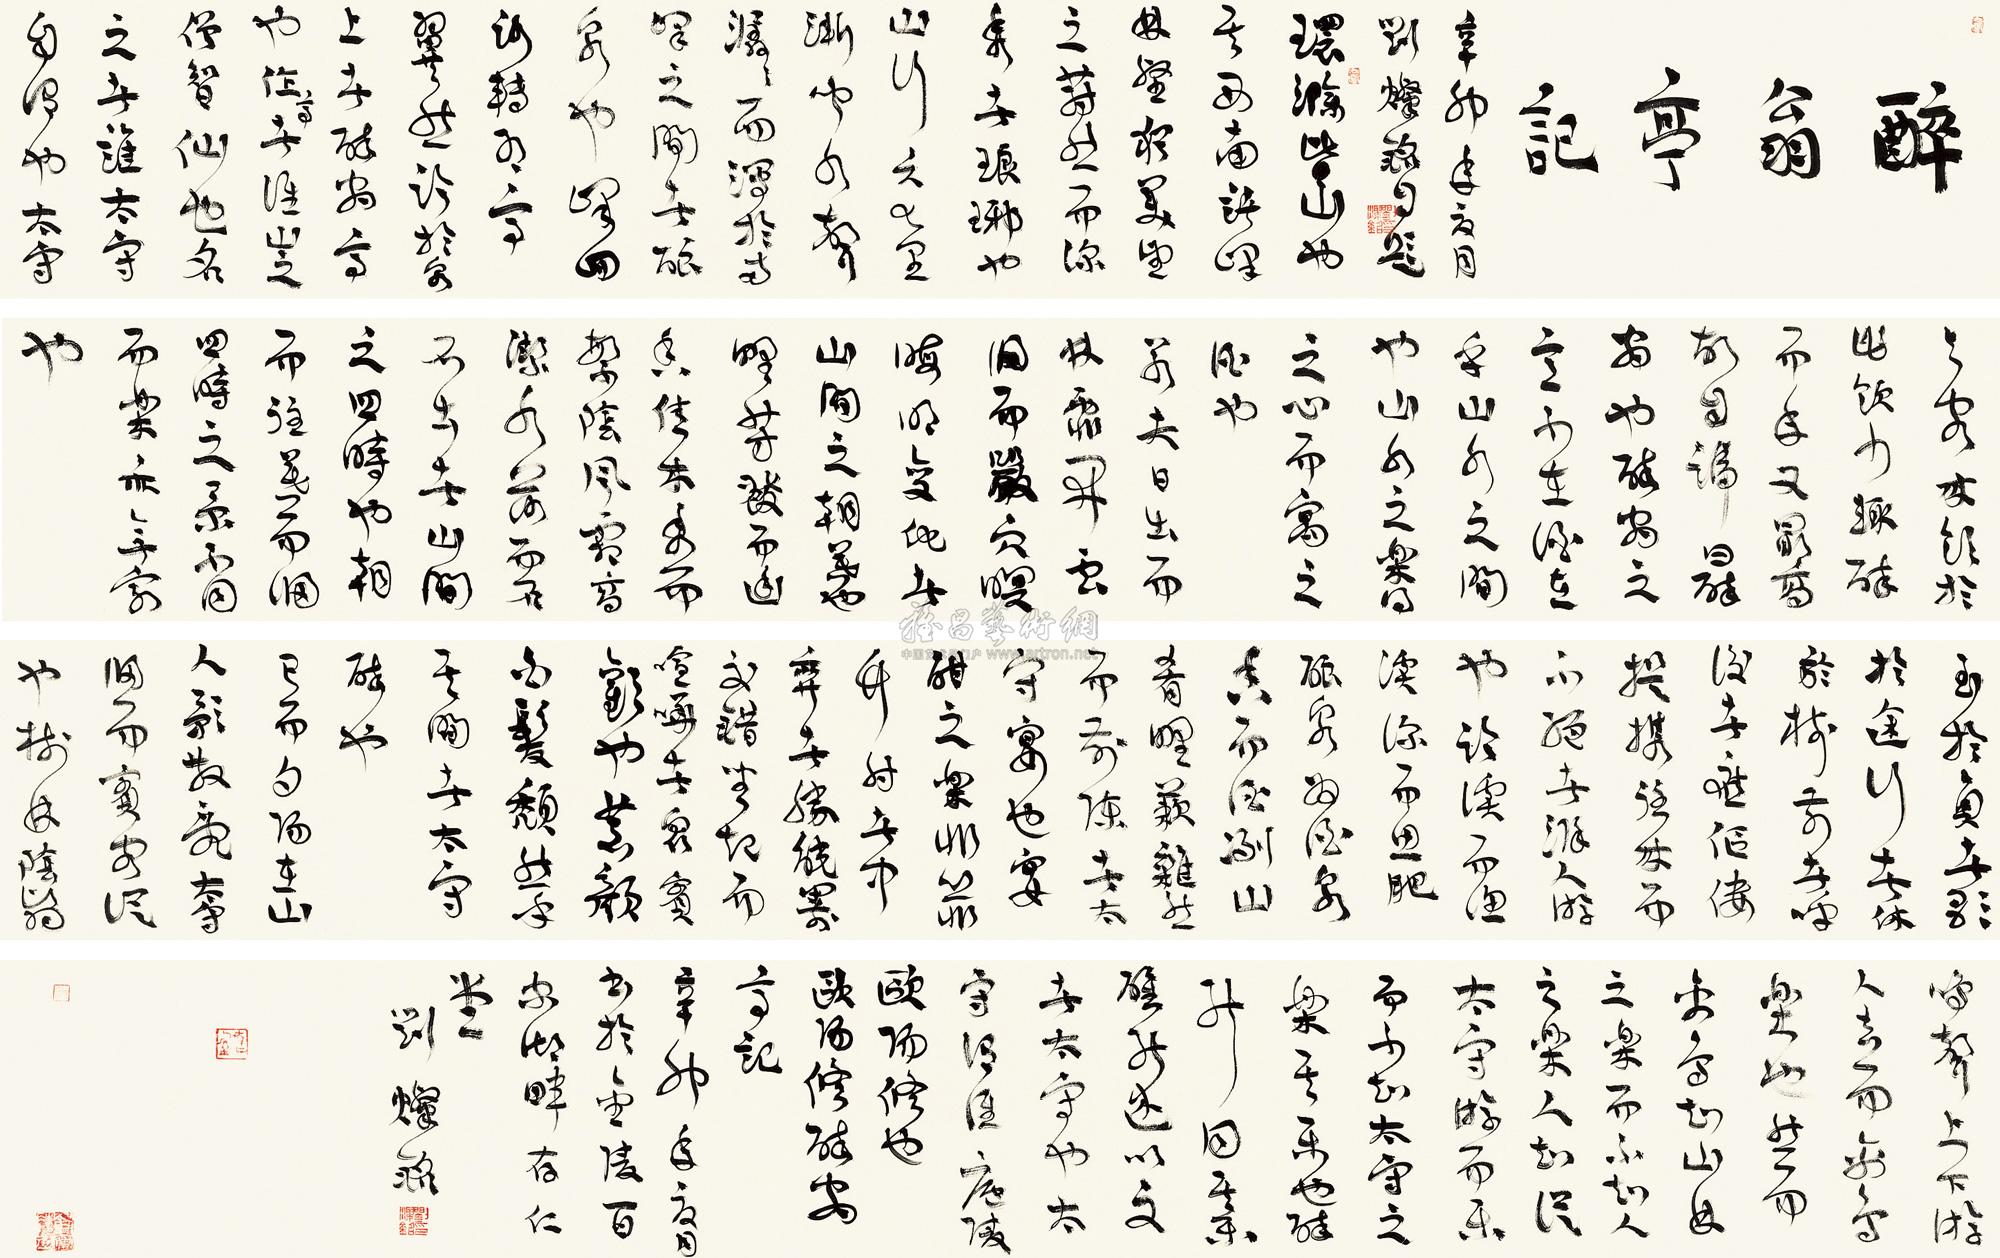 醉翁亭記
辛卯年夏月
劉燦銘自題
環滁皆山也
其西南諸峰
林壑尤美望
之蔚然而深
秀者琅琊也
山行六七里
漸聞水聲
潺潺而瀉於兩
峰之間者釀
泉也峰回
路轉有亭
翼然臨於泉
上者醉翁亭
也作亭者誰山之
僧智仙也名
之者誰太守
自謂也太守
與客來飲於
此飲少輒醉
而年又最高
故自號曰醉
翁也醉翁之
意不在酒在
乎山水之間
也山水之樂得
之心而寓之
酒也
若夫日出而
林霏開雲
歸而巖穴暝
晦明變化者
山間之朝暮也
野芳發而幽
香佳木秀而
繁陰風霜高
潔水落而
石出者山間
之四時也朝
而往暮而歸
四時之景不同
而樂亦無窮
也
至於負者歌
於途行者休
於樹前者呼
後者應傴僂
提攜往來而
不絕者滁人游
也臨溪而漁
溪深而魚肥
釀泉為酒泉
香而酒洌山
肴野蔌雜然
而前陳者太
守宴也宴
酣之樂非絲非
竹射者中
弈者勝觥籌
交錯坐起而
喧嘩者眾賓
歡也蒼顏
白髮頹然乎
其間者太守
醉也
已而夕陽在山
人影散亂太守
歸而賓客從
也樹林陰翳
鳴聲上下游
人去而禽鳥
樂也然而
禽鳥知山林
之樂而不知人
之樂人知從
太守游而樂
而不知太守之
樂其樂也醉
能同其樂
醒能述以文
者太守也太
守謂誰廬陵
歐陽修也
歐陽修醉翁
亭記
辛卯年夏月
書於金陵百
家湖畔存仁
堂
劉燦銘
雅昌藝術網
中国艺术品门户 www.artron.net